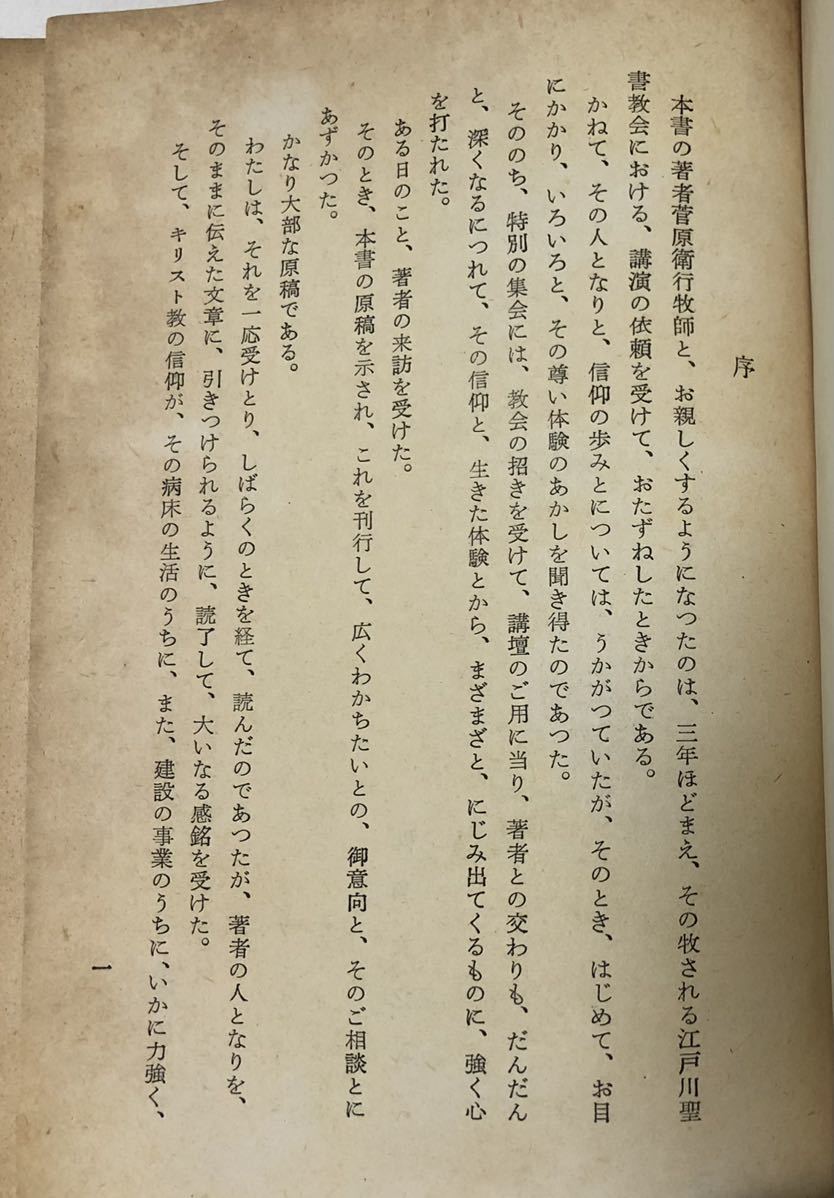 序
本書の著者菅原衛行牧師と、お親しくするようになつたのは、三年ほどまえ、その牧される江戸川聖
書教会における、講演の依頼を受けて、おたずねしたときからである。
かねて、その人となりと、信仰の歩みとについては、うかがつていたが、そのとき、はじめて、お目
にかかり、いろいろと、その尊い体験のあかしを聞き得たのであつた。
そののち、特別の集会には、教会の招きを受けて、講壇のご用に当り、著者との交わりも、だんだん
と、深くなるにつれて、その信仰と、生きた体験とから、まざまざと、にじみ出てくるものに、強く心
を打たれた。
ある日のこと、著者の来訪を受けた。
そのとき、本書の原稿を示され、これを刊行して、広くわかちたいとの、御意向と、そのご相談とに
あずかつた。
かなり大部な原稿である。
わたしは、それを一応受けとり、しばらくのときを経て、読んだのであつたが、著者の人となりを、
そのままに伝えた文章に、引きつけられるように、読了して、大いなる感銘を受けた。
そして、キリスト教の信仰が、その病床の生活のうちに、また、建設の事業のうちに、いかに力強く、
一